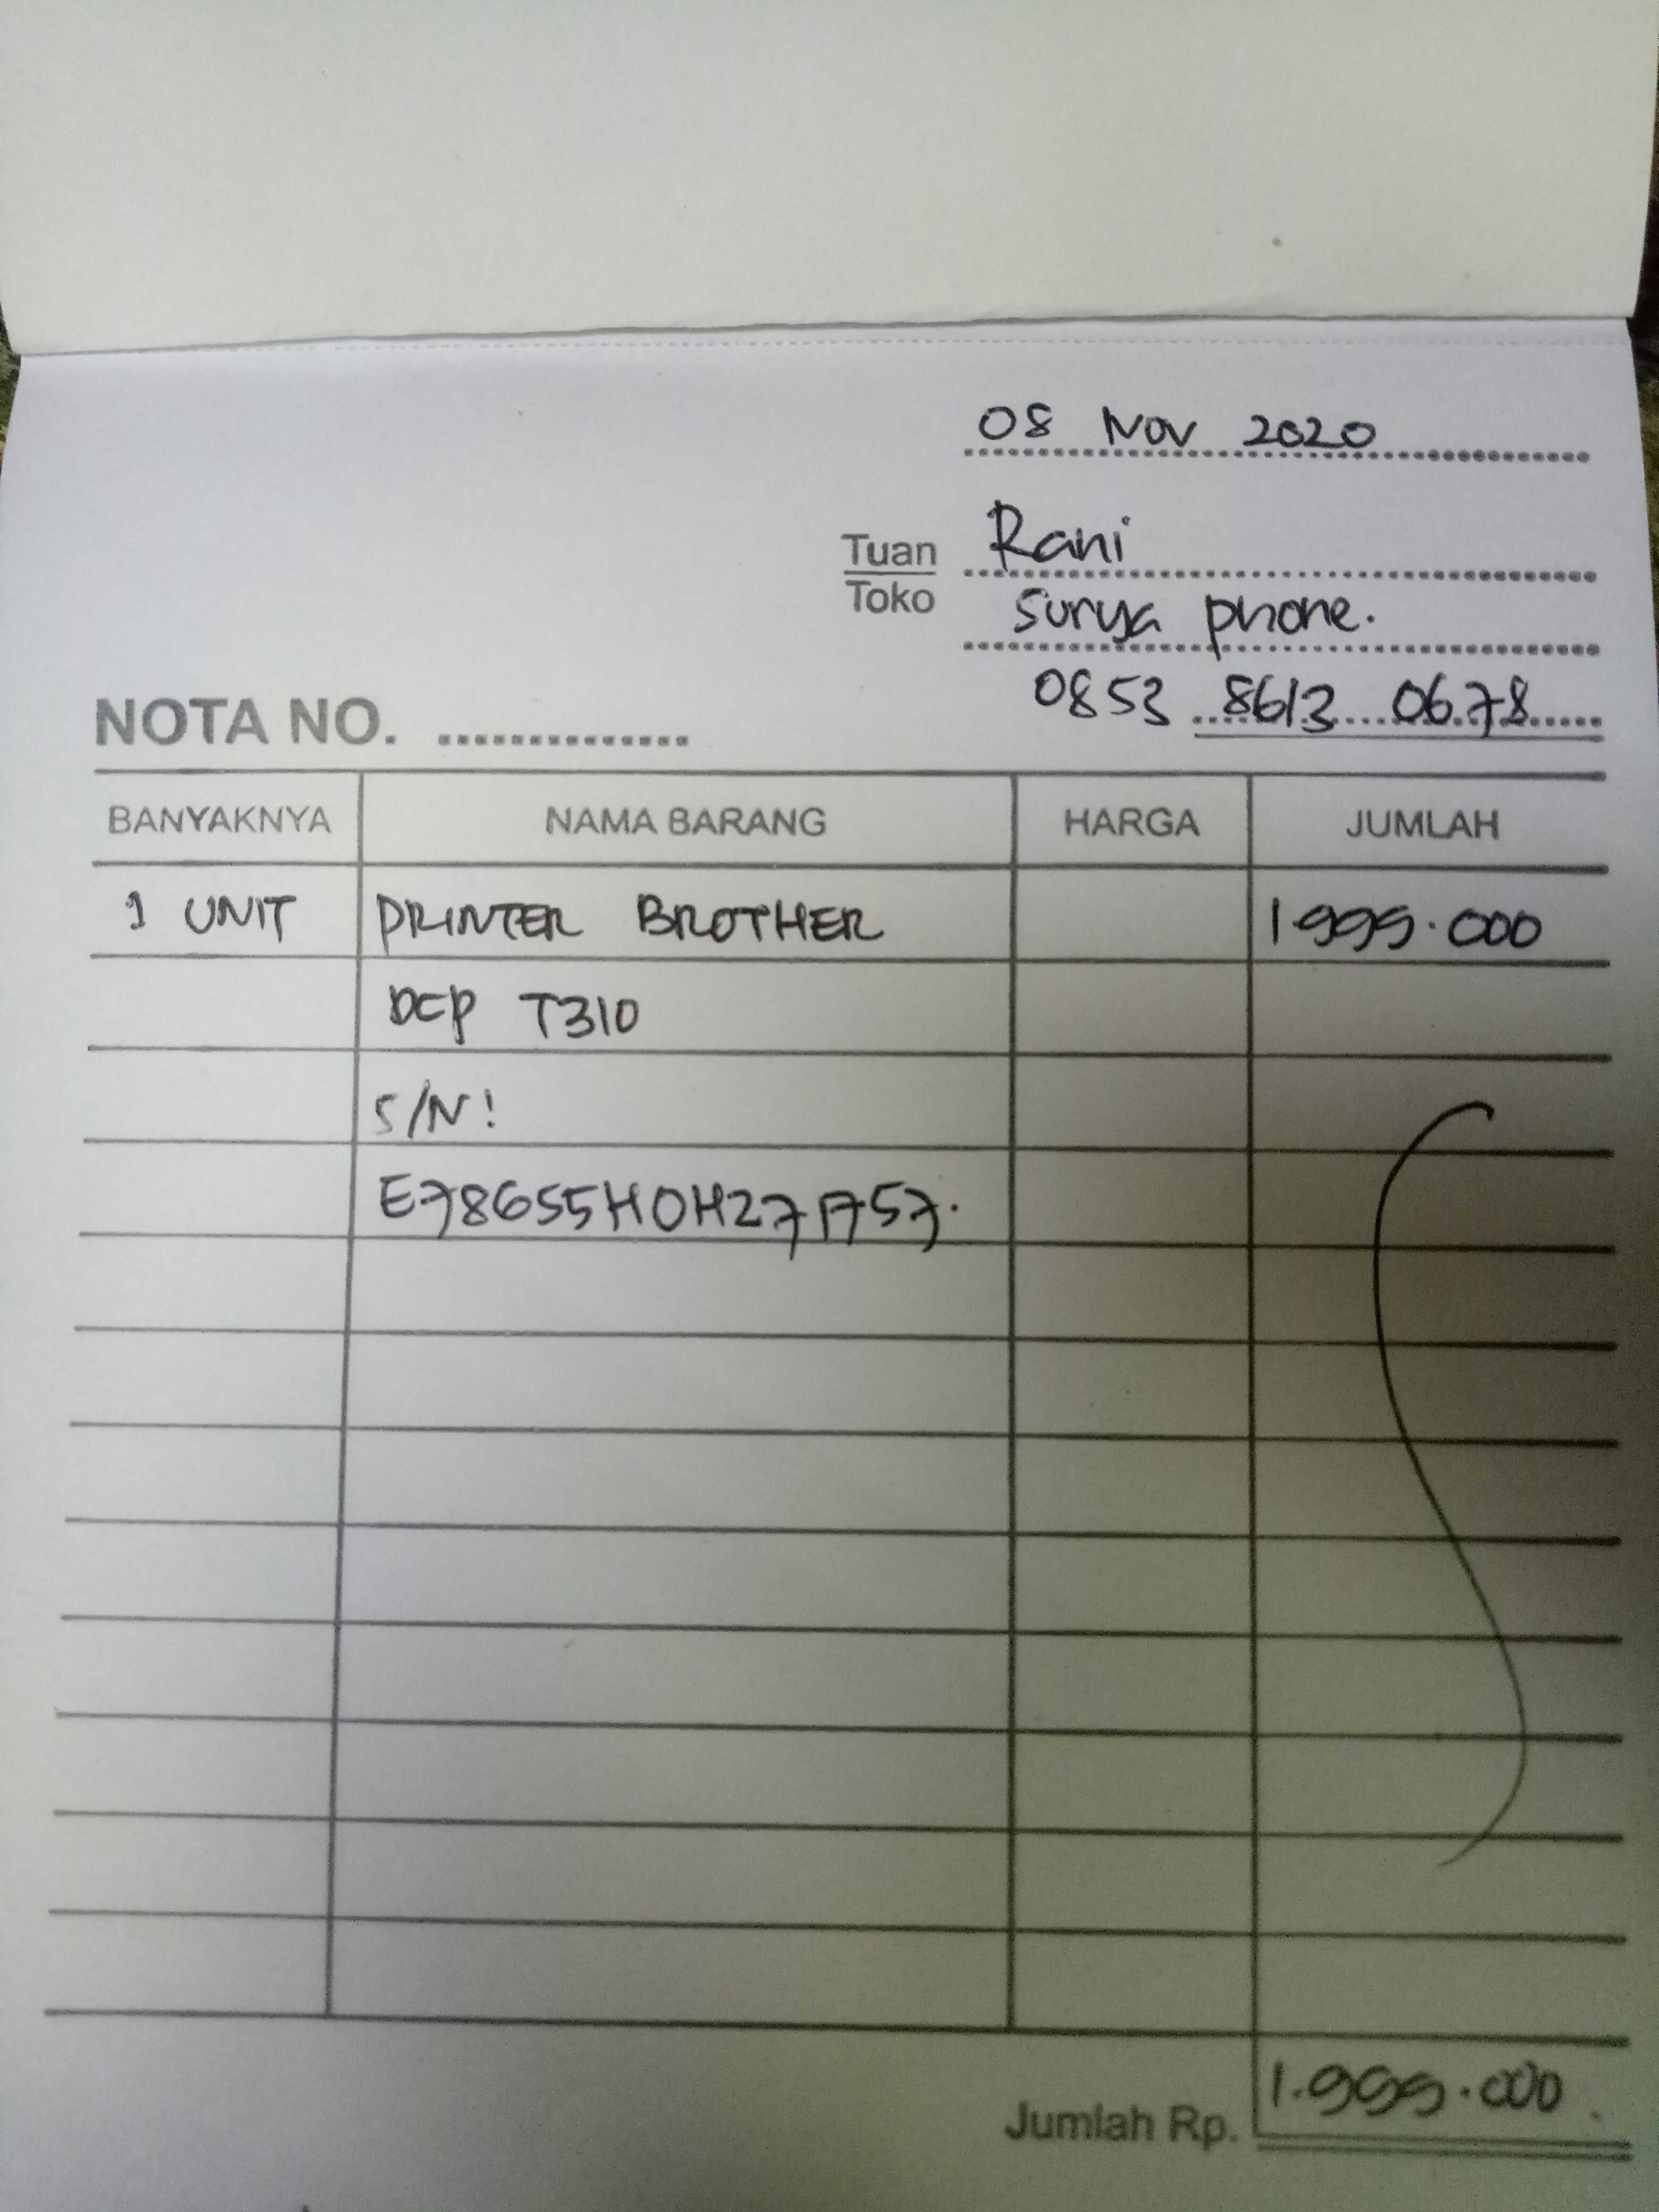 08 Nov 2020
Tuan Rani
Toko Surya phone.
0853 8613 0678
NOTA NO. ..............
BANYAKNYA NAMA BARANG HARGA JUMLAH
1 UNIT PRINTER BROTHER 1999.000
DCP T310
S/N!
E78655H0H27A757.
Jumlah Rp. 1.999.000